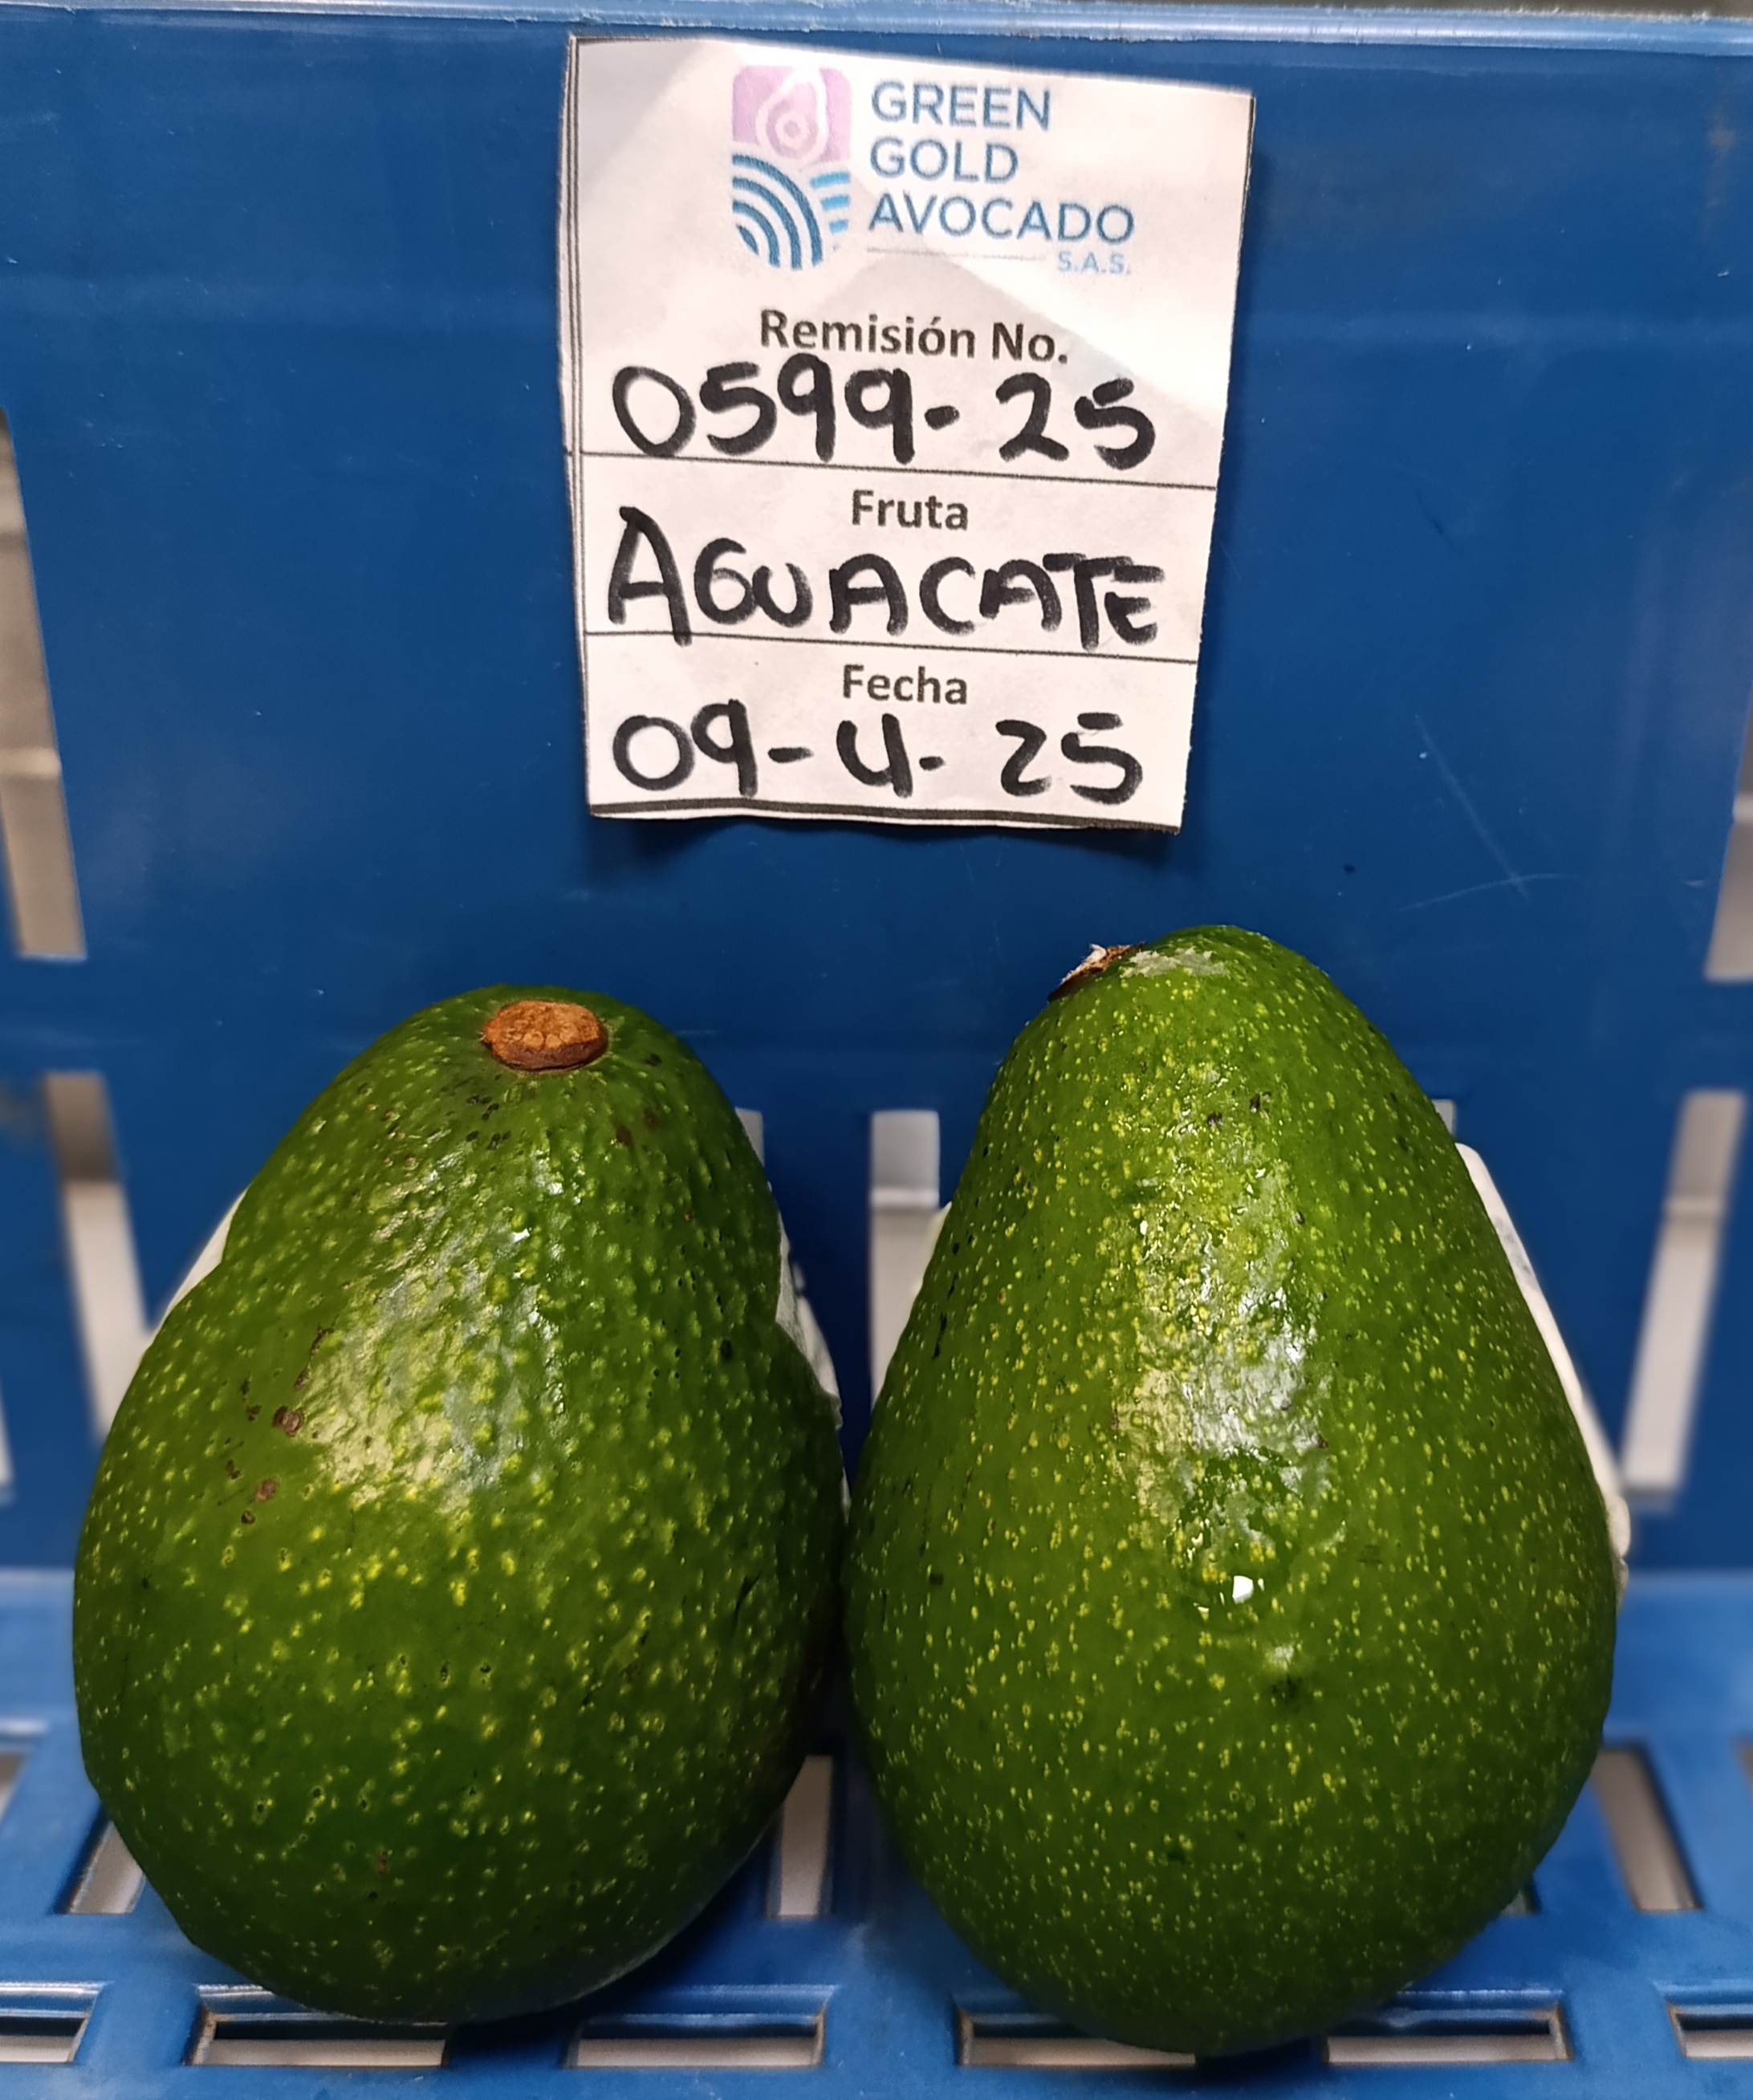 GREEN
GOLD
AVOCADO
S.A.S.
Remisión No.
0599-25
Fruta
AGUACATE
Fecha
09-4-25